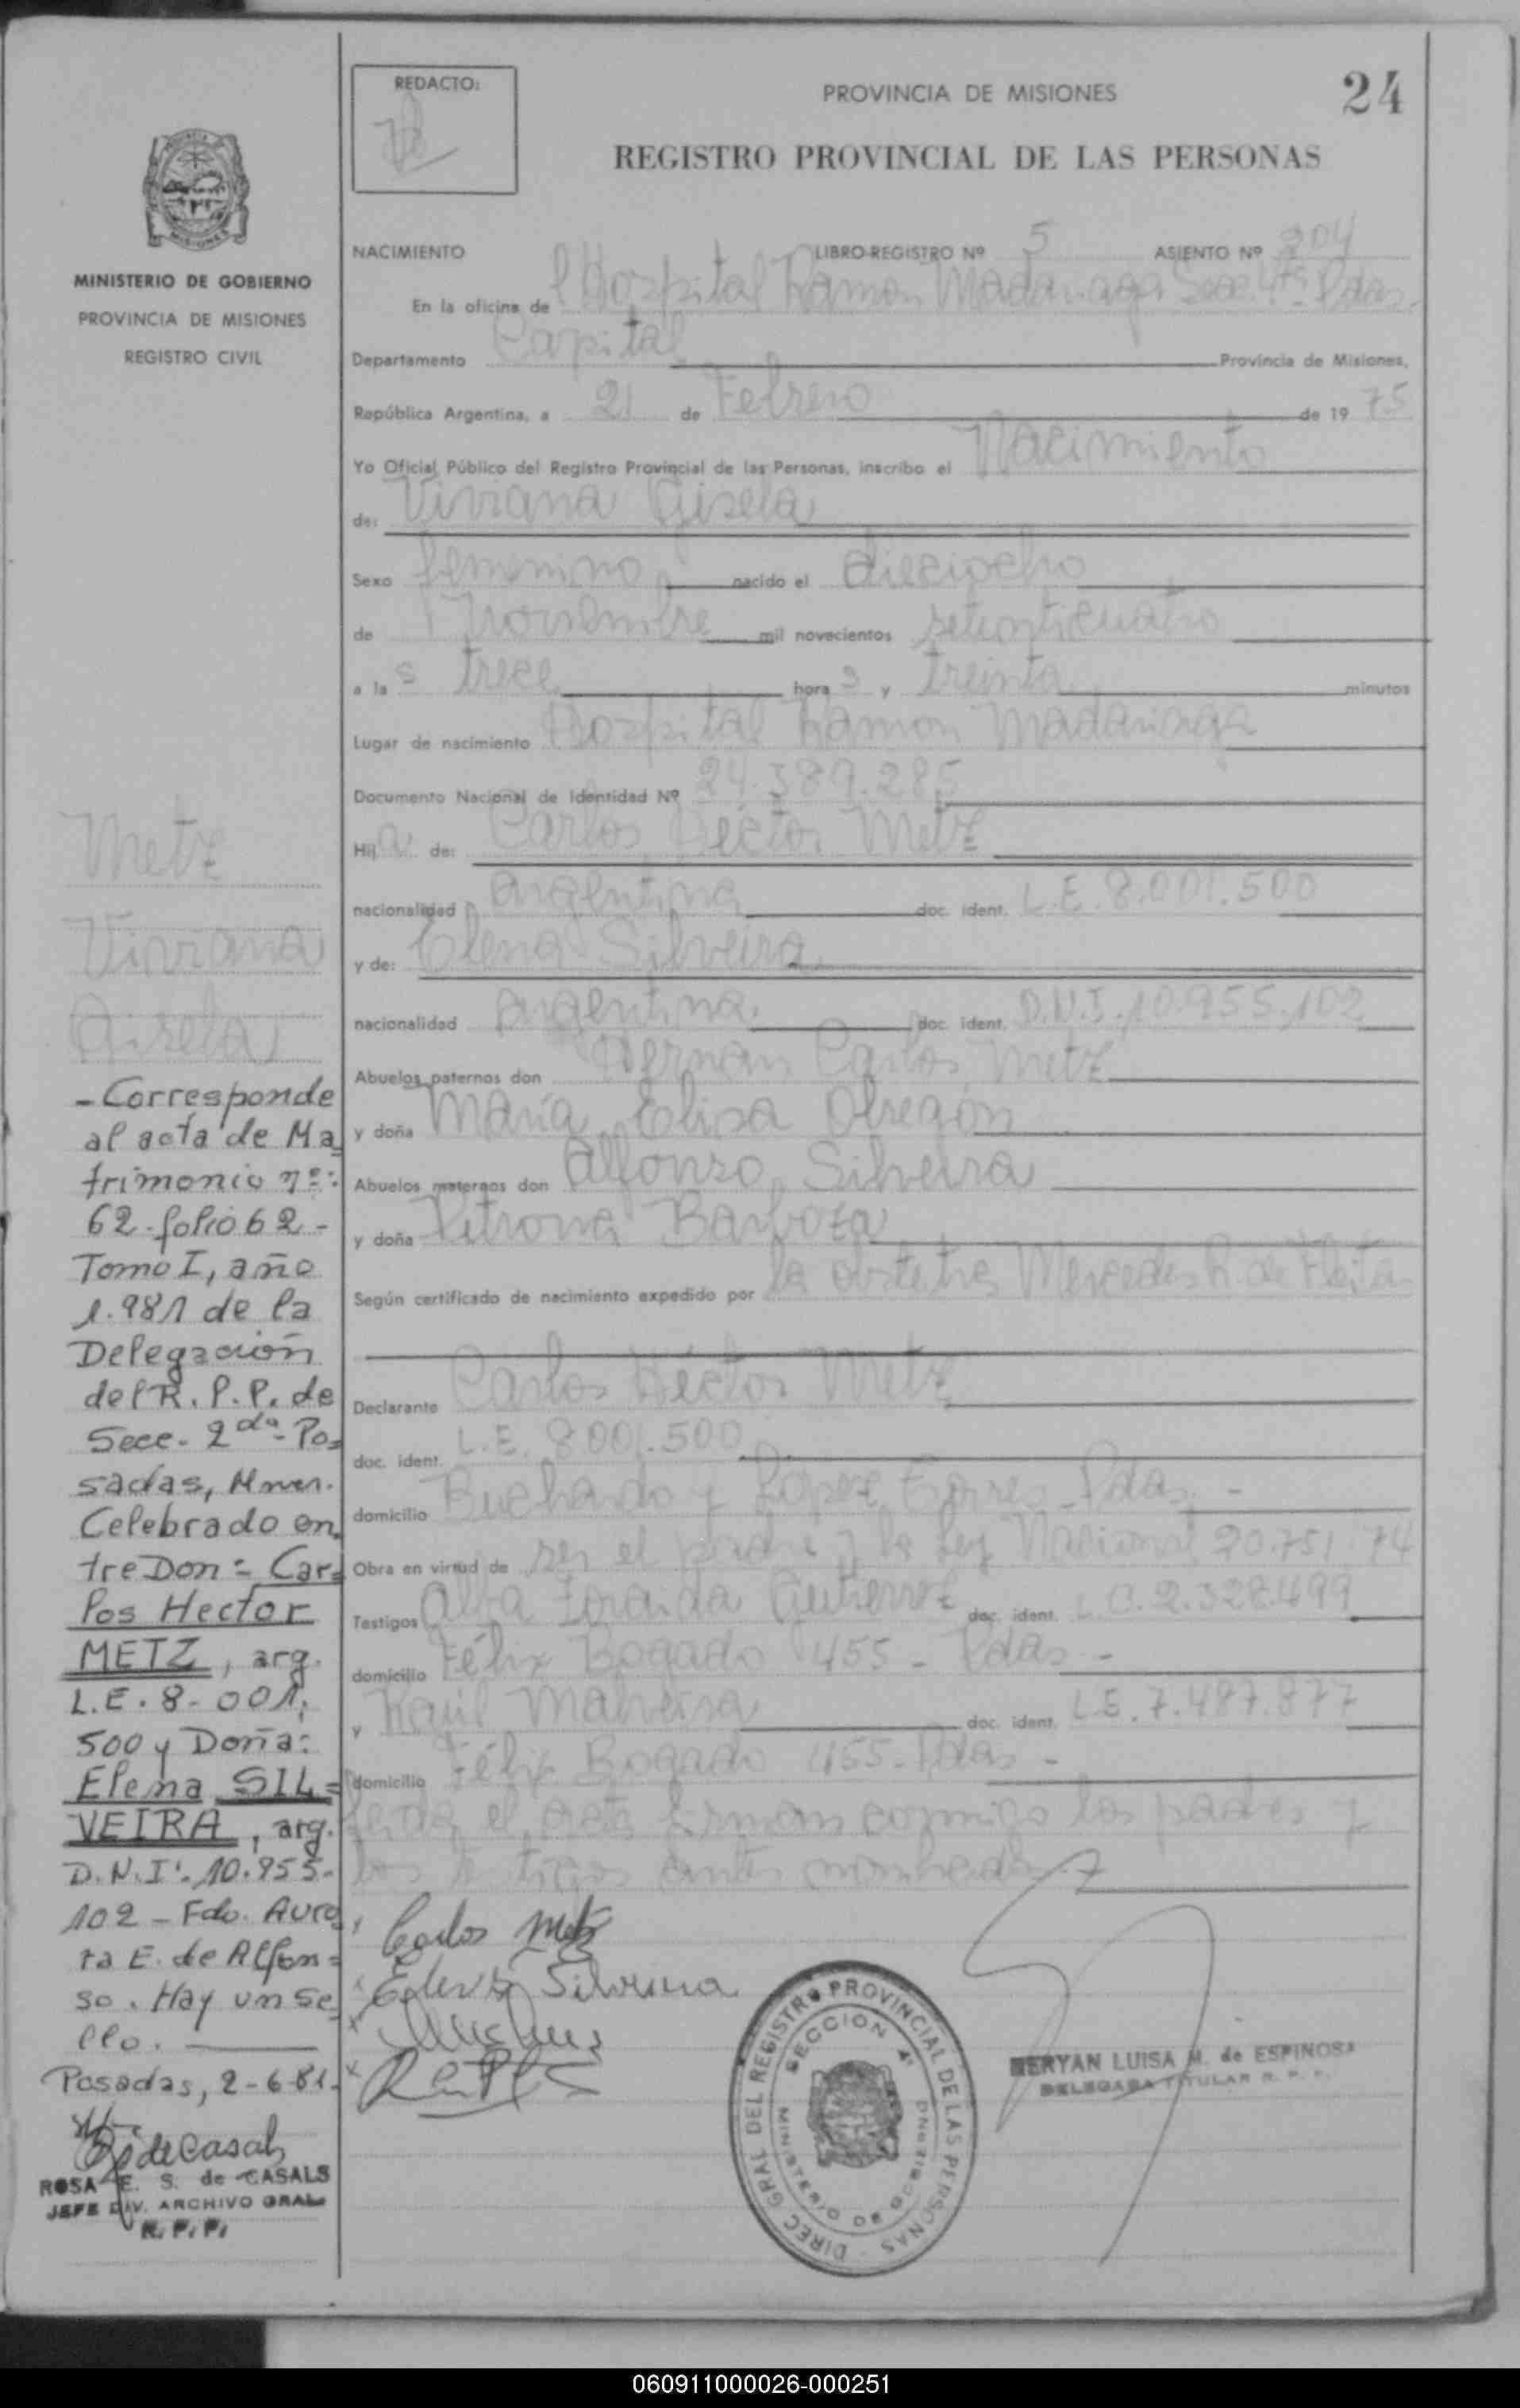 REDACTO:
PROVINCIA DE MISIONES
24
REGISTRO PROVINCIAL DE LAS PERSONAS
MINISTERIO DE GOBIERNO
PROVINCIA DE MISIONES
REGISTRO CIVIL
NACIMIENTO LIBRO-REGISTRO Nº 5 ASIENTO Nº 204
En la oficina de Hospital Ramon Madariaga Secc. 4ta Pdas.
Departamento Capital Provincia de Misiones,
República Argentina, a 21 de Febrero de 1975
Yo Oficial Público del Registro Provincial de las Personas, inscribo el Nacimiento
de: Viviana Gisela
Sexo femenino nacido el dieciocho
de Noviembre mil novecientos setenticuatro
a las trece hora s y treinta minutos
Lugar de nacimiento Hospital Ramon Madariaga
Documento Nacional de Identidad Nº 24.389.285
Hija de: Carlos Hector Metz
nacionalidad argentina doc. ident. L.E. 8.001.500
y de: Elena Silveira
nacionalidad argentina doc. ident. D.N.I. 10.955.102
Abuelos paternos don Hernan Carlos Metz
y doña María Elisa Obregón
Abuelos maternos don Alfonso Silveira
y doña Petrona Barboza
Según certificado de nacimiento expedido por la obstetra Mercedes R. de Fleitas
Declarante Carlos Héctor Metz
doc. ident. L.E. 8001.500
domicilio Buchardo y Lopez Torres - Pdas. -
Obra en virtud de ser el padre y la Ley Nacional 20.751/74
Testigos Alba Zoraida Gutierrez doc. ident. L.C. 2.328.499
domicilio Félix Bogado 1455 - Pdas -
y Raúl Malveira doc. ident. L.E. 7.487.877
domicilio Félix Bogado 455 - Pdas -
Leida el acta firman conmigo los padres y
los testigos antes nombrados
Metz
Viviana
Gisela
- Corresponde
al acta de Ma
trimonio nº:
62 - folio 62 -
Tomo I, año
1.981 de la
Delegación
del R. P. P. de
Secc. 2da - Po=
sadas, Mnes.
Celebrado en
tre Don = Car=
los Hector
METZ, arg.
L.E. 8-001.
500 y Doña:
Elena SIL=
VEIRA, arg.
D.N.I. 10.955-
102 - Fdo. Auro
ra E. de Alfon=
so. Hay un se
llo.
Posadas, 2-6-81.
ROSA E. S. de CASALS
JEFE DIV. ARCHIVO GRAL
R. P. P.
Carlos Metz
Elena Silveira
DIREC GRAL DEL REGISTRO PROVINCIAL DE LAS PERSONAS
SECCION 4ª
MINISTERIO DE GOBIERNO
MERYAN LUISA M. de ESPINOSA
DELEGADA TITULAR R. P. P.
060911000026-000251